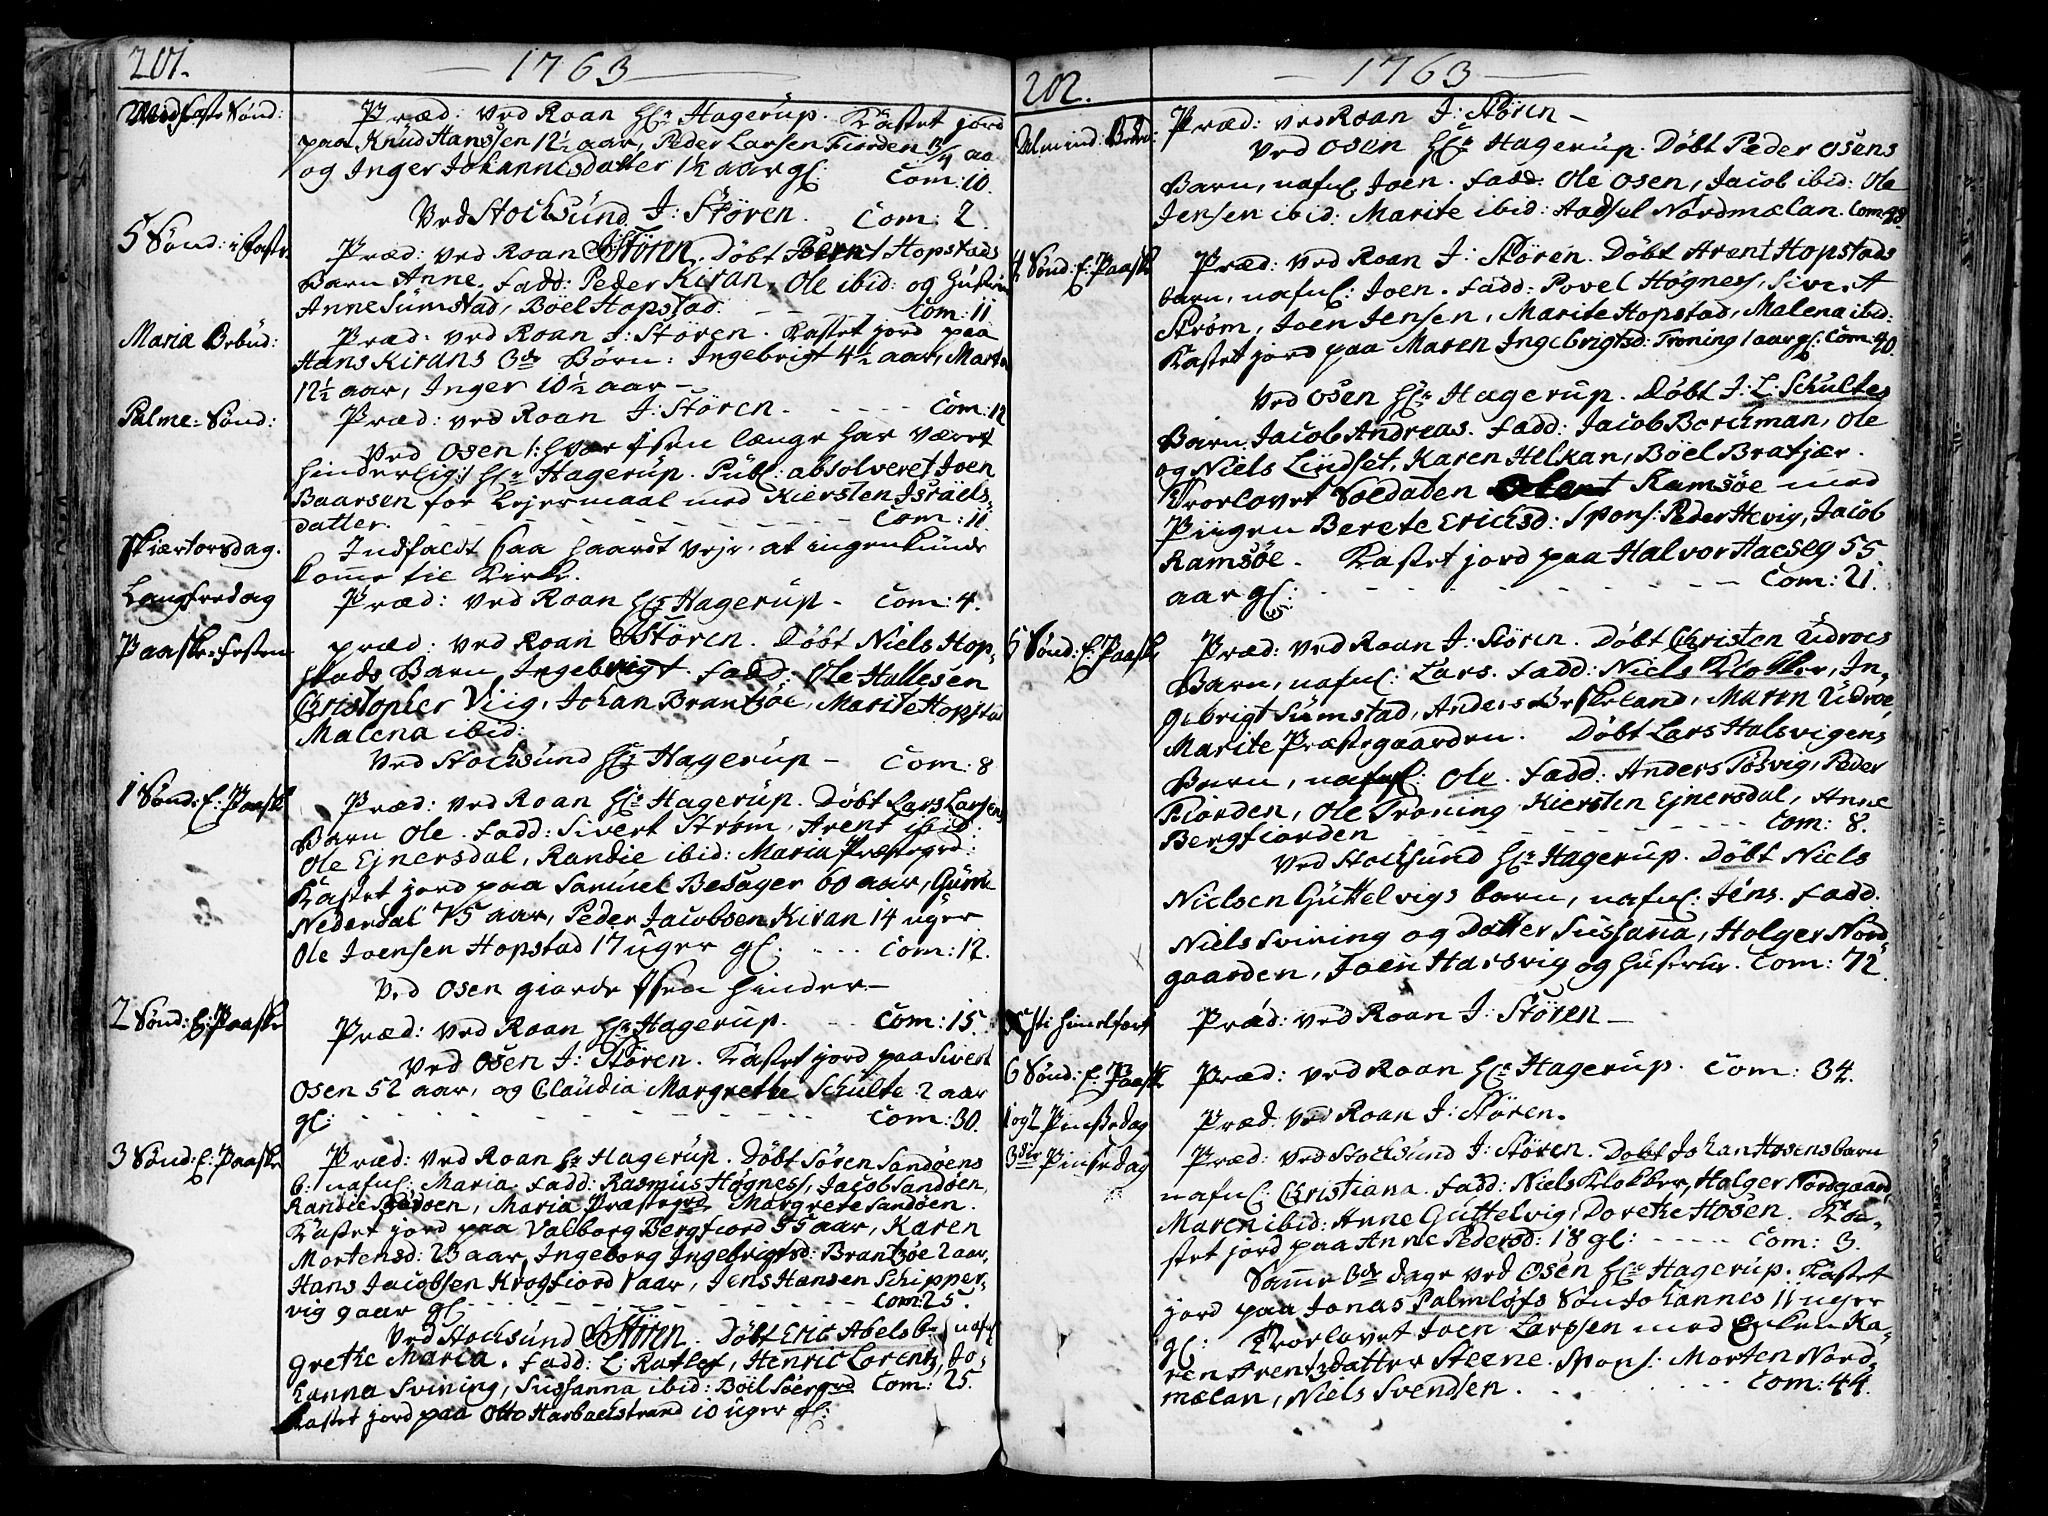 201.
1763
Midfaste Sønd: Præd: ved Roan Hr: Hagerup. Kastet jord
paa Knud Hanssen 12½ aar, Peder Larsen Fiorden 13/4 aa
og Inger Johannisdatter 1½ aar gl: Com: 10.
Ved Stocksund J: Støren. Com: 2.
5 Sønd: i Faste Præd: ved Roan J Støren. Døbt Bernt Hopstads
Barn Anne. Fadd: Peder Kiran, Ole ibid: og Hustru
Anne Sumstad, Böel Hopstad. Com: 11
Maria Bebud: Præd: ved Roan J: Støren. Kastet jord paa
Hans Kirans 3de Børn: Ingebrigt 4½ aar, Marta
12½ aar, Inger 10½ aar –
Palme=Sønd: Præd: ved Roan J: Støren. Com: 12
Ved Osen /: hvor Isen længe har været
hinderlig :/ Hr: Hagerup. Publ: absolveret Joen
Baarsen for Lejermaal med Kiersten Israels
datter. Com: 11
Skiertorsdag. Indfaldt saa haardt Vejr, at ingen kunde
komme til Kirke.
Langfredag Præd: ved Roan Hr: Hagerup – Com: 4.
Paaske=festen præd: ved Roan J Støren. Døbt Niels Hop-
stads Barn Ingebrigt. Fadd: Ole Hallesen
Christopher Viig, Johan Brantzöe, Marite Hopstad
Malena ibid:
Ved Stocksund Hr: Hagerup – Com: 8
1 Sønd: E: Paaske Præd: ved Roan Hr: Hagerup. Døbt Lars Larsens
Barn Ole. Fadd: Sivert Strøm, Arent ibid:
Ole Ejnersdal, Randie ibid: Maria Præstegrd:
Kastet jord paa Samuel Besager 60 aar, Gurru
Nederdal 75 aar, Peder Jacobsen Kiran 14 uger
Ole Joensen Hopstad 17 uger gl: Com: 12.
Ved Osen giorde Isen hinder –
2 Sønd: E: Paaske Præd: ved Roan Hr: Hagerup. Com: 15.
Ved Osen J: Støren. Kastet jord paa Sivert
Osen 52 aar, og Claudia Margrethe Schulte 2 aar
gl: Com: 30.
3 Sønd: E: Paaske Præd: ved Roan Hr Hagerup. Døbt Søren Sandøens
b: nafnl: Maria. Fadd: Rasmus Høgness, Jacob Sandøen,
Randie Bedøen, Maria Præstegrd Margrete Sandøen.
Kastet jord paa Valborg Bergfiord 55 aar, Karen
Mortensd: 23 aar, Ingeborg Ingebrigtsd: Brantzöe 2 aar,
Hans Jacobsen Krogfiord 1 aar, Jens Hansen Schipper-
vig 9 aar gl: Com: 25.
Ved Stocksund J Støren. Døbt Eric Abels b: nafnl
Grethe Maria. Fadd: L: Rutlef, Henric Lorentz, Jo-
hanna Svining, Sussanna ibid: Böel Söergrd Com: 25.
Kastet jord paa Otto Harbachstrand 10 uger gl:
202.
1763
Almind: Bede: Præd: ved Roan J: Støren –
Ved Osen Hr: Hagerup. Døbt Peder Osens
Barn, nafnl: Joen. Fadd: Ole Osen, Jacob ibid: Ole
Jensen ibid: Marite ibid: Aadsel Nordmælan. Com: 48.
4 Sønd: E: Paaske Præd: ved Roan J: Støren. Døbt Arent Hopstads
barn, nafnl: Joen. Fadd: Povel Høgness, Sivert
Strøm, Joen Jensen, Marite Hopstad, Malena ibid:
Kastet jord paa Maren Ingebrigtsd: Troning 1 aar gl: Com: 40.
Ved Osen Hr: Hagerup. Døbt J: L: Schultes
Barn Jacob Andreas. Fadd: Jacob Borchman, Ole
og Niels Lindset, Karen Helkan, Böel Bratjær.
Trorlovet Soldaten Ramsöe med
Pigen Berete Ericksd: Spons: Peder Hevig, Jacob
Ramsöe. Kastet jord paa Halvor Haeseg 55
aar gl: Com: 21.
5 Sønd: E: Paaske Præd: ved Roan J: Støren. Døbt Christen Udroes
Barn, nafnl: Lars. Fadd: Niels Klokker, In-
gebrigt Sumstad, Anders Beskeland, Maren Udroe,
Marite Præstegaarden. Døbt Lars Halsvigens
Barn, nafnl: Ole. Fadd: Anders Sösvig, Peder
Fiorden, Ole Troning Kiersten Ejnersdal, Anne
Bergfiorden Com: 8.
Ved Stocksund Hr: Hagerup. Døbt Niels
Nielsen Guttelvigs barn, nafnl: Jens. Fadd:
Niels Svining og Datter Sussana, Holger Nord-
gaarden, Joen Harsvig og Hustrue. Com: 72.
Christi Himelfart Præd: ved Roan J: Støren –
6 Sønd: E: Paaske Præd: ved Roan Hr: Hagerup. Com: 34.
1 og 2 Pinsedag Præd. ved Roan J: Støren.
3die Pinsedag Præd: ved Stocksund J: Støren. Døbt Johan Hosens barn
nafnl: Christiana. Fadd: Niels Klokker, Holger Nordgaard,
Maren ibid: Anne Guttelvig, Dorethe Hosen. Ka-
stet jord paa Anne Pedersd: 18 gl: Com: 3.
Samme 3de dage ved Osen Hr: Hagerup. Kastet
jord paa Jonas Palmlöfs Søn Johannes 11 uger
gl: Trorlovet Joen Larssen med Enken Ka-
ren Arentzdatter Steene. Spons: Morten Nord-
mælan, Niels Svendsen. Com: 44.